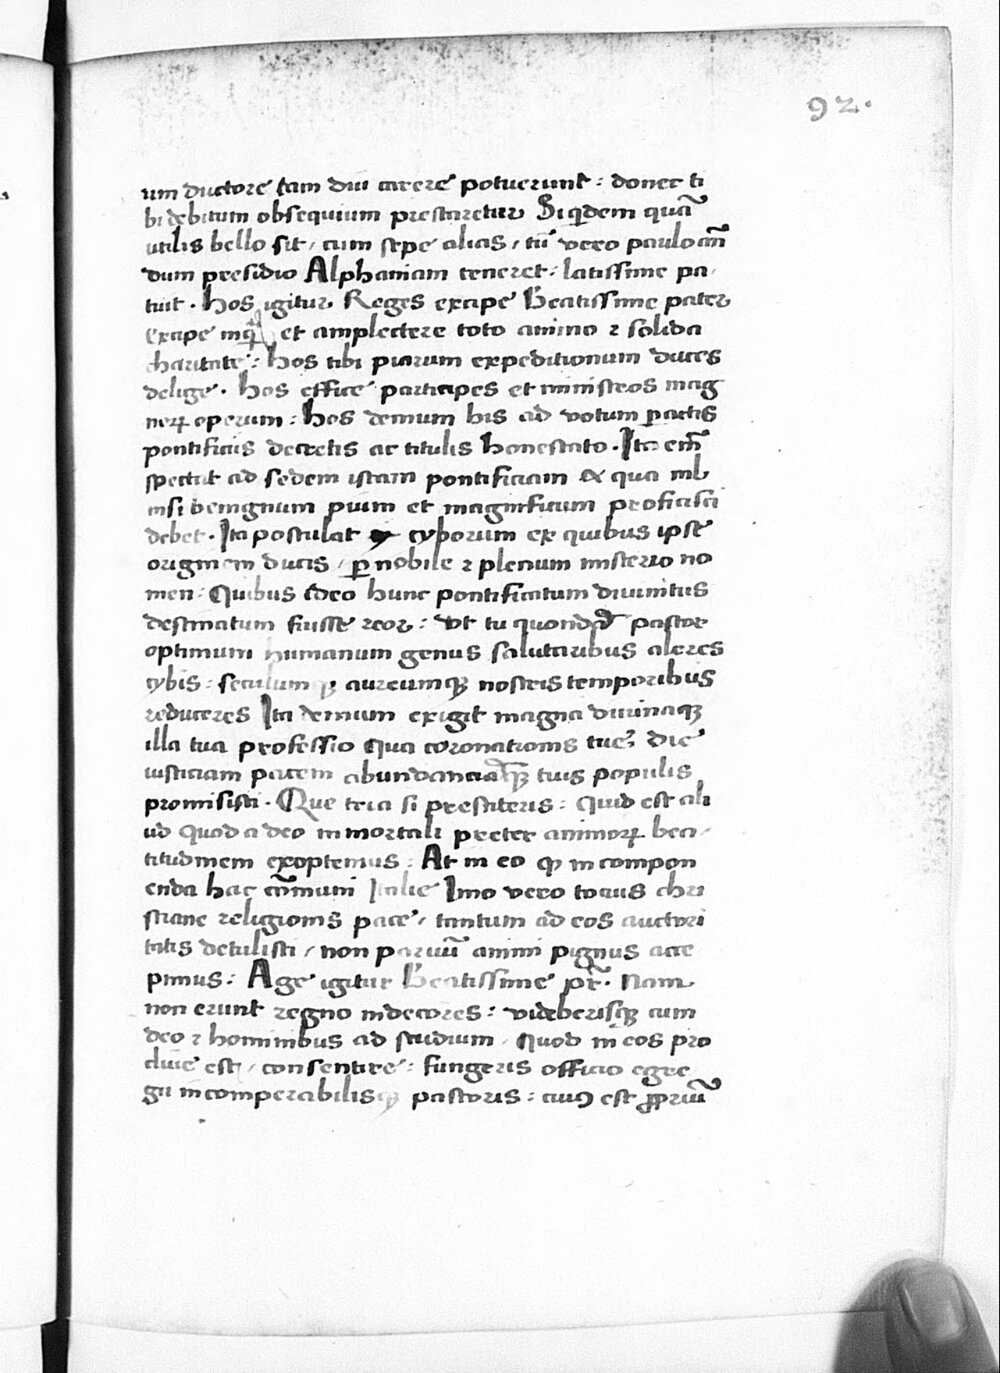 92.
um ductore tam diu carere potuerunt: donec ti
bi debitum obsequium prestaretur Siqdem quā
utilis bello sit / cum sepe alias / tū vero paulo an̄
dum presidio Alphaniam teneret: latissime pa-
tuit. Hos igitur Reges excipe Beatissime pater
excipe inq̄ et amplectere toto animo ⁊ solida
charitate: hos tibi piarum expeditionum duces
delige. hos effice participes et ministros mag
norꝝ operum: hos demum his ad votum ꝑactis
pontificiis decretis ac titulis honestato. Ita em̄
spectat ad sedem istam pontificiam & qua nil
nisi benignum pium et magnificum proficisci
debet. Ita postulat cyborum ex quibus ipse
originem ducis / ꝑ nobile ⁊ plenum misterio no
men: Quibus ideo hunc pontificatum divinitus
destinatum fuisse reor: ut tu quondā pastor
optimum humanum genus salutaribus aleres
cybis: seculumqꝫ aureumqꝫ nostris temporibus
reduceres Ita demum exigit magna divinaqꝫ
illa tua professio Qua coronationis tue die
iusticiam pacem abundanciāqꝫ tuis populis
promisisti. Que tria si prestiteris: Quid est ali
ud quod a deo in mortali preter animorꝝ bea-
titudinem exoptemus: At in eo qꝫ in compon
enda hac cōmuni Italie Imo vero tocius chri
stiane religionis pace / tantum ad eos auctori
tatis detulisti / non parvū animi pignus acce
pimus: Age igitur Beatissime pr̄. Nam
non erunt regno indecores: videberisqꝫ cum
deo ⁊ hominibus ad studium / Quod in eos pro
clive est / consentire: fungeris officio egre
gii incomperabilisqꝫ pastoris: cuiꝰ est ꝓpriū